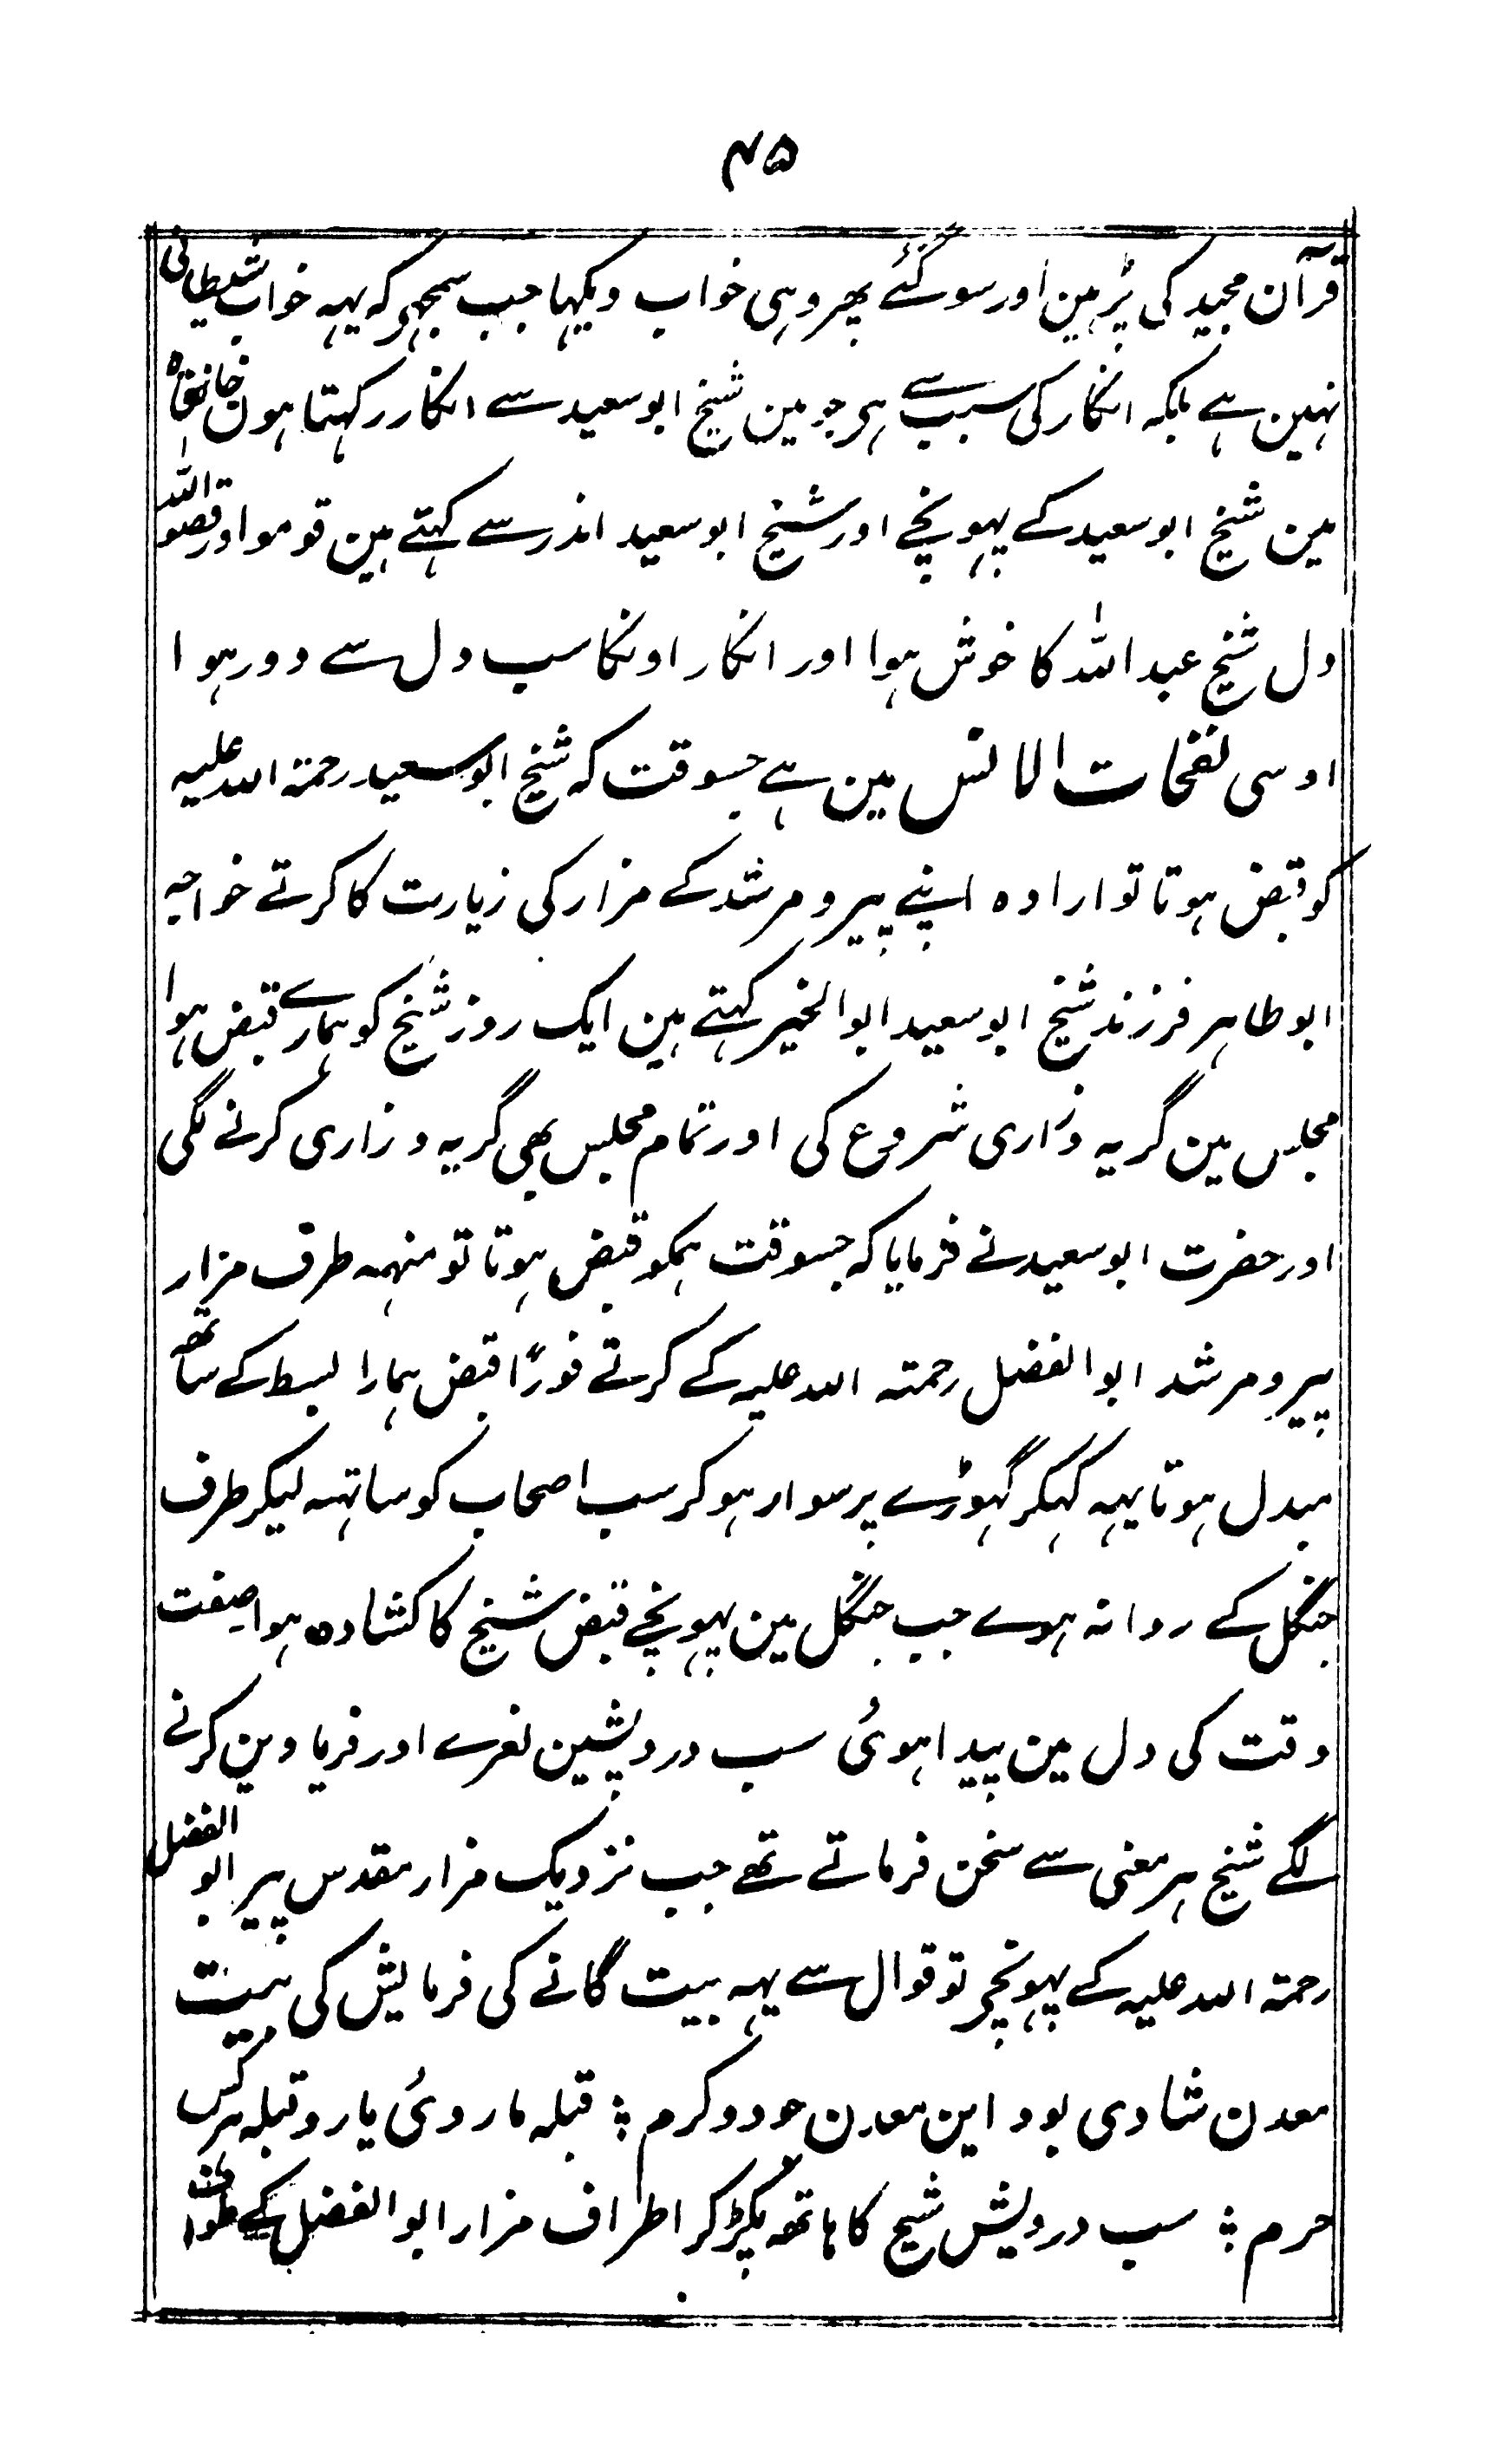 ۴۵
قرآن مجید کی پڑہین اور سو گئے پھر وہی خواب دیکہا جب سمجہی کہ یہہ خواب شیطانی
نہین ہے بلکہ انکار کی سبب سے ہی جو مین شیخ ابو سعید سے انکار رکہتا ہون خانقاہ
مین شیخ ابو سعید کے پہونچے اور شیخ ابو سعید اندر سے کہتے ہین قوموا وارقصوا للہ
دل شیخ عبد اللہ کا خوش ہوا اور انکار اونکا سب دل سے دور ہوا
اوسی نفحات الانس مین ہے جسوقت کہ شیخ ابو سعید رحمۃ اللہ علیہ
کو قبض ہوتا تو ارادہ اپنے پیر و مرشد کے مزار کی زیارت کا کرتے خواجہ
ابو طاہر فرزند شیخ ابو سعید ابو الخیر کہتے ہین ایک روز شیخ کو ہمارے قبض ہوا
مجلس مین گریہ وزاری شروع کی اور تمام مجلس بھی گریہ و زاری کرنے لگی
اور حضرت ابو سعید نے فرمایا کہ جسوقت ہمکو قبض ہوتا تو منہہ طرف مزار
پیر و مرشد ابو الفضل رحمتہ اللہ علیہ کے کرتے فوراً قبض ہمارا بسط کے ساتھ
مبدل ہوتا یہہ کہکر گہوڑے پر سوار ہو کر سب اصحاب کو ساتہہ لیکر طرف
جنگل کے روانہ ہوے جب جنگل مین پہونچے قبض شیخ کا کشادہ ہوا صفت
وقت کی دل مین پیدا ہوئ سب درویشین نعرے اور فریادین کرنے
لگے شیخ ہر معنی سے سخن فرماتے تھے جب نزدیک مزار مقدس پیر ابو الفضل
رحمۃ اللہ علیہ کے پہونچی تو قوال سے یہہ بیت گانے کی فرمایش کی بیت
معدن شادی بود این معدن جود و کرم ؛ قبلہ ما روئ یار و قبلہ ہر کس
حرم ؛ سب درویش شیخ کا ہاتھ پکڑ کر اطراف مزار ابو الفضل کے طواف